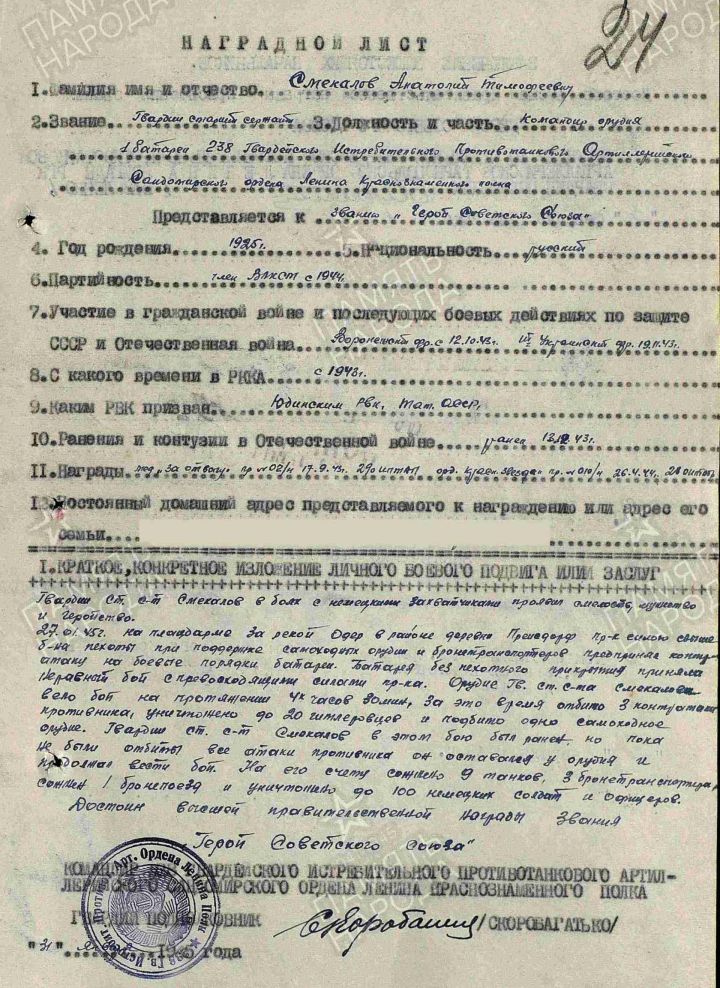 24
НАГРАДНОЙ ЛИСТ
1.Фамилия имя и отчество. Смекалов Анатолий Тимофеевич
2.Звание. Гвардии старший сержант 3.Должность и часть. Командир орудия
1 Батареи 238 Гвардейского Истребительного Противотанкового Артиллерийского
Сандомирского ордена Ленина Краснознаменного полка
Представляется к званию "Герой Советского Союза"
4. Год рождения. 1925г. 5.Национальность. русский
6.Партийность. член ВЛКСМ с 1944.
7.Участие в гражданской войне и последующих боевых действиях по защите
СССР и Отечественная война. Воронежский фр. с 12.10.43г. Украинский фр. 19.11.43г.
8.С какого времени в РККА. с 1943г.
9.Каким РВК призван. Юдинским РВК, Тат. АССР,
10.Ранения и контузии в Отечественной войне. ранен
11.Награды. мед. "За отвагу" пр №02/н орд. Красн. звезда пр. №010/н 26.4.44.
13.Постоянный домашний адрес представляемого к награждению или адрес его
семьи....
I.КРАТКОЕ,КОНКРЕТНОЕ ИЗЛОЖЕНИЕ ЛИЧНОГО БОЕВОГО ПОДВИГА ИЛИ ЗАСЛУГ
Гвардии Ст. с-т Смекалов в боях с немецкими захватчиками проявил смелость, мужество
и геройство.
27.01.45г. на плацдарме за рекой Одер в районе деревни пр-к силою свыше
б-на пехоты при поддержке самоходных орудий и бронетранспортеров предпринял контр-
атаку на боевые порядки батареи. Батарея без пехотного прикрытия приняла
неравный бой с превосходящими силами пр-ка. Орудие Гв. ст. с-та Смекалова
вело бой на протяжении 4х часов 30мин, за это время отбито 3 контратаки
противника, уничтожено до 20 гитлеровцев и подбито одно самоходное
орудие. Гвардии ст. с-т Смекалов в этом бою был ранен, но пока
не были отбиты все атаки противника он оставался у орудия и
продолжал вести бой. На его счету сожжено 9 танков, 3 бронетранспортера,
сожжен 1 бронепоезд и уничтожено до 100 немецких солдат и офицеров.
Достоин высшей правительственной награды звания
"Герой Советского Союза"
КОМАНДИР ГВАРДЕЙСКОГО ИСТРЕБИТЕЛЬНОГО ПРОТИВОТАНКОВОГО АРТИЛ-
ЛЕРИЙСКОГО САНДОМИРСКОГО ОРДЕНА ЛЕНИНА КРАСНОЗНАМЕННОГО ПОЛКА
ГВАРДИИ ПОДПОЛКОВНИК /СКОРОБАГАТЬКО/
"31" года
Арт. Ордена Ленина Полк
ПАМЯТЬ НАРОДА